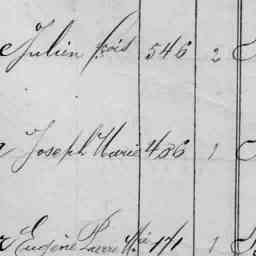 Julien fçois 546 2
Joseph Marie 486 1
Eugène Pierre Mie 171 1